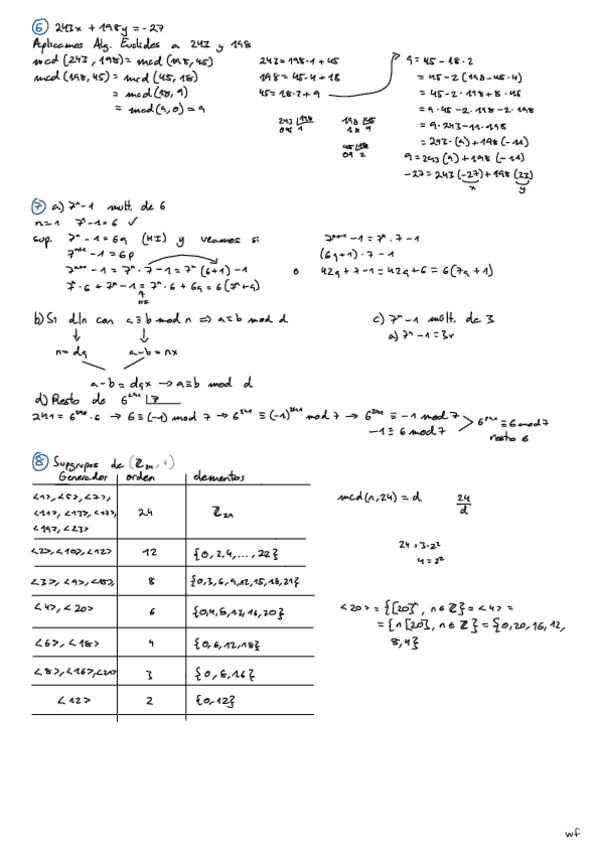 6 243x + 198y = -27
Aplicamos Alg. Euclides a 243 y 198
mcd (243, 198) = mcd (198, 45)
mcd (198, 45) = mcd (45, 18)
= mcd (18, 9)
= mcd (9, 0) = 9
243 = 198·1 + 45
198 = 45·4 + 18
45 = 18·2 + 9
243 198
045 1
198 45
18 4
45 18
09 2
9 = 45 - 18·2
= 45 - 2 (198 - 45·4)
= 45 - 2·198 + 8·45
= 9·45 - 2·198
= 9·243 - 11·198
= 243·(9) + 198 (-11)
9 = 243 (9) + 198 (-11)
-27 = 243 (-27) + 198 (33)
x y
7 a) 7ⁿ - 1 mult. de 6
n = 1 7¹ - 1 = 6 ✓
sup. 7ⁿ - 1 = 6q (HI) y veamos si
7ⁿ⁺¹ - 1 = 6p
7ⁿ⁺¹ - 1 = 7ⁿ·7 - 1 = 7ⁿ (6+1) - 1
7ⁿ·6 + 7ⁿ - 1 = 7ⁿ·6 + 6q = 6 (7ⁿ + q)
HI
o
7ⁿ⁺¹ - 1 = 7ⁿ·7 - 1
(6q + 1)·7 - 1
42q + 7 - 1 = 42q + 6 = 6 (7q + 1)
b) Si d|n con a ≡ b mod n ⇒ a ≡ b mod d
n = dq a - b = nx
a - b = dqx → a ≡ b mod d
c) 7ⁿ - 1 mult. de 3
a) 7ⁿ - 1 = 3r
d) Resto de 6²⁴¹ 7
→ 6 ≡ (-1) mod 7 → 6²⁴¹ ≡ (-1)²⁴¹ mod 7 → 6²⁴¹ ≡ -1 mod 7
-1 ≡ 6 mod 7
6²⁴¹ ≡ 6 mod 7
resto 6
8 Subgrupos de (ℤ₂₄, +)
Generador orden elementos
<1>, <5>, <7>,
<11>, <13>, <17>, 24 ℤ₂₄
<19>, <23>
<2>, <10>, 12 {0, 2, 4, ..., 22}
<3>, <9>, <15>, 8 {0, 3, 6, 9, 12, 15, 18, 21}
<4>, <20> 6 {0, 4, 8, 12, 16, 20}
<6>, <18> 4 {0, 6, 12, 18}
<8>, <16>, 3 {0, 8, 16}
<12> 2 {0, 12}
mcd (n, 24) = d 24/d
24 = 3·2³
4 = 2²
<20> = {[20]ⁿ, n ∈ ℤ} = <4> =
= {n[20], n ∈ ℤ} = {0, 20, 16, 12,
8, 4}
wf